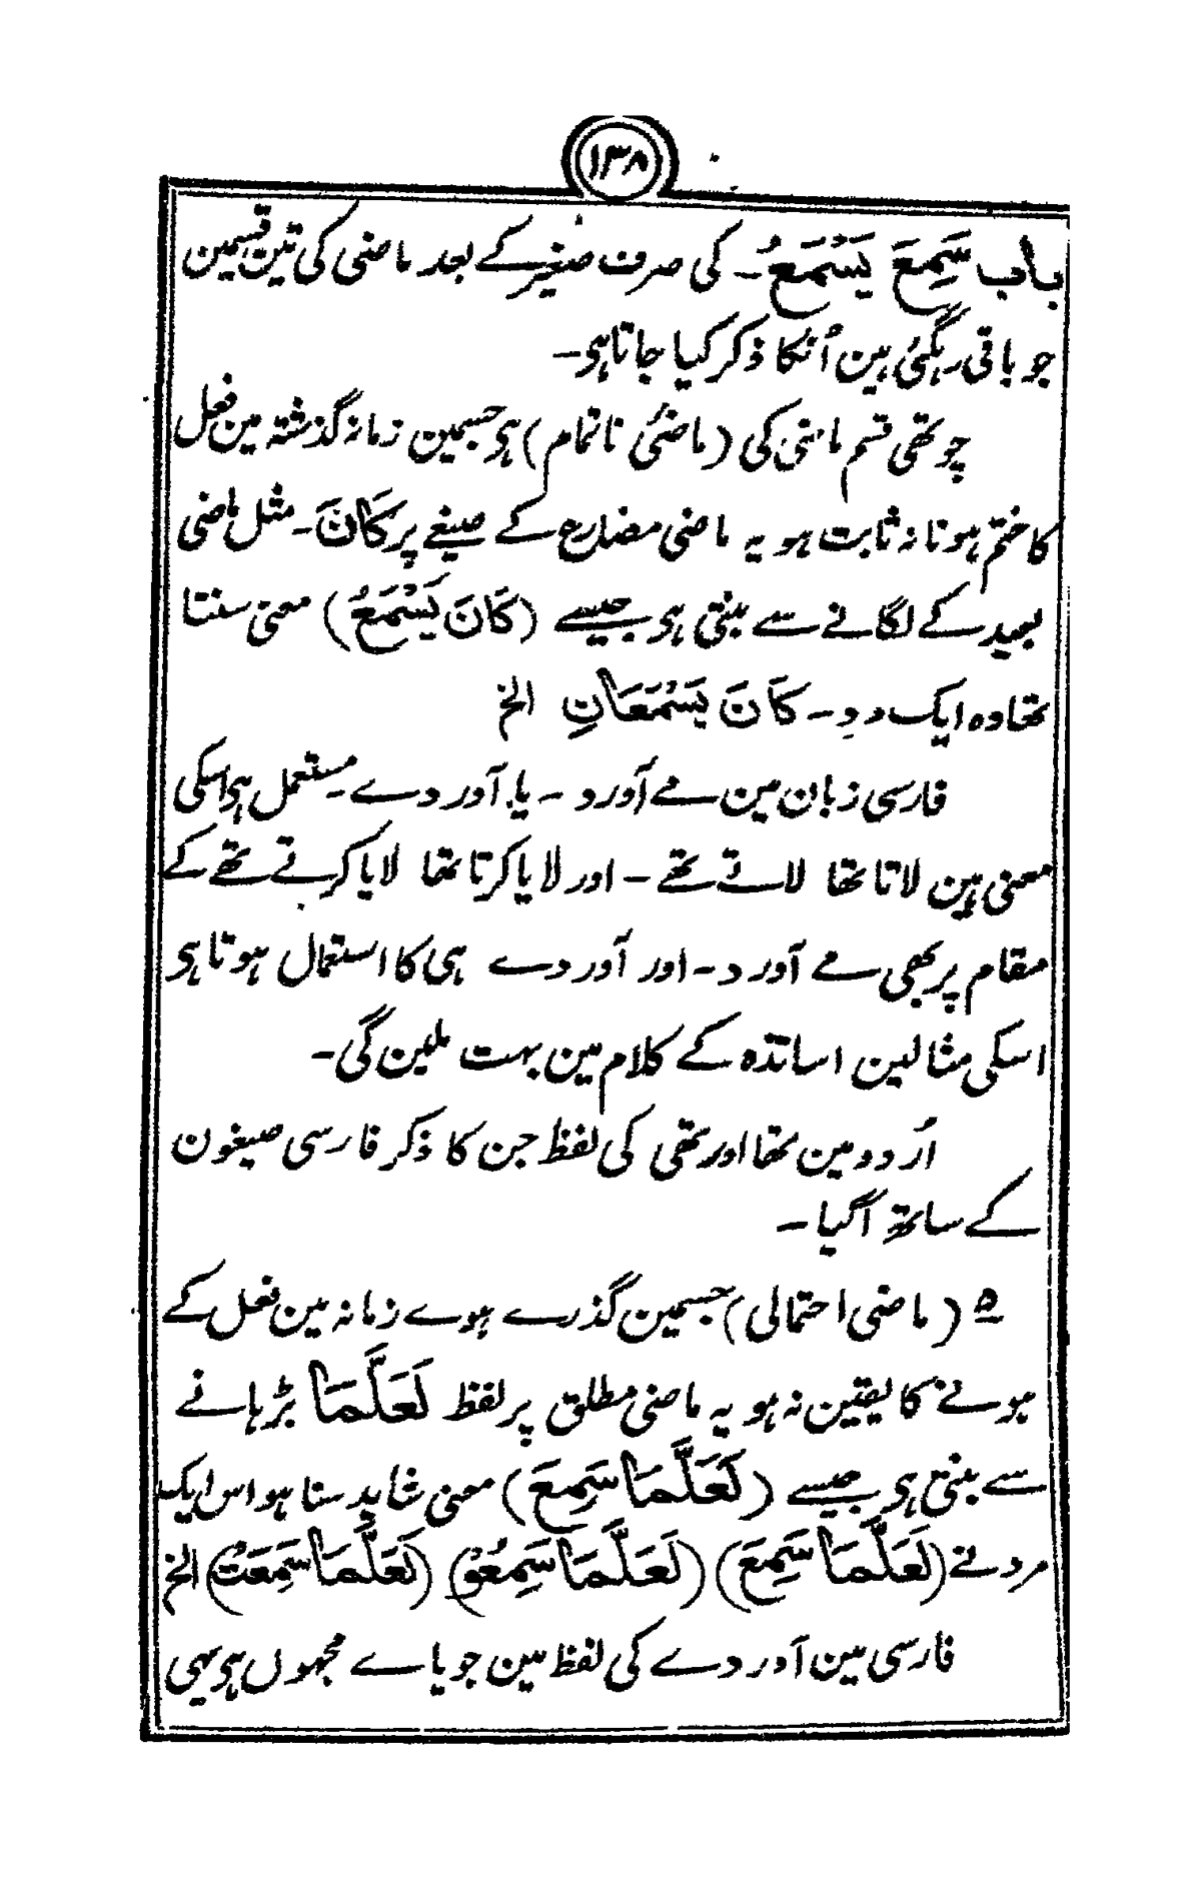 ۱۳۸
باب سَمِعَ یَسْمَعُ۔ کی صرف صغیر کے بعد ماضی کی تین قسمین
جو باقی رہگئی ہین اُنکا ذکر کیا جاتا ہی۔
چوتھی قسم ماضی کی (ماضئی ناتمام) ہی جسمین زمانہ گذشتہ مین فعل
کا ختم ہونا نہ ثابت ہو یہ ماضی مضارع کے صیغے پر کَانَ۔ مثل ماضی
بعید کے لگانے سے بنتی ہی جیسے (کَانَ یَسْمَعُ) معنی سنتا
تھا وہ ایک مرد۔ کَانَ یَسْمَعَانِ الخ
فارسی زبان مین مے آورد ۔ یا آوردے مستعمل ہی اسکی
معنی ہین لاتا تھا لاتے تھے ۔ اور لایا کرتا تھا لایا کرتے تھے کے
مقام پر بھی مے آورد ۔ اور آوردے ہی کا استعمال ہوتا ہی
اسکی مثالین اساتذہ کے کلام مین بہت ملین گی۔
اُردو مین تھا اور تھی کی لفظ جن کا ذکر فارسی صیغون
کے ساتھ آگیا ۔
۵ (ماضی احتمالی) جسمین گذرے ہوے زمانہ مین فعل کے
ہونے کا یقین نہ ہو یہ ماضی مطلق پر لفظ لَعَلَّمَا بڑہانے
سے بنتی ہی جیسے (لَعَلَّمَا سَمِعَ) معنی شاید سنا ہو اس ایک
مرد نے (لَعَلَّمَا سَمِعَ) (لَعَلَّمَا سَمِعُوْ) (لَعَلَّمَا سَمِعَتْ) الخ
فارسی مین آوردے کی لفظ مین جو یاے مجہول ہی یہی